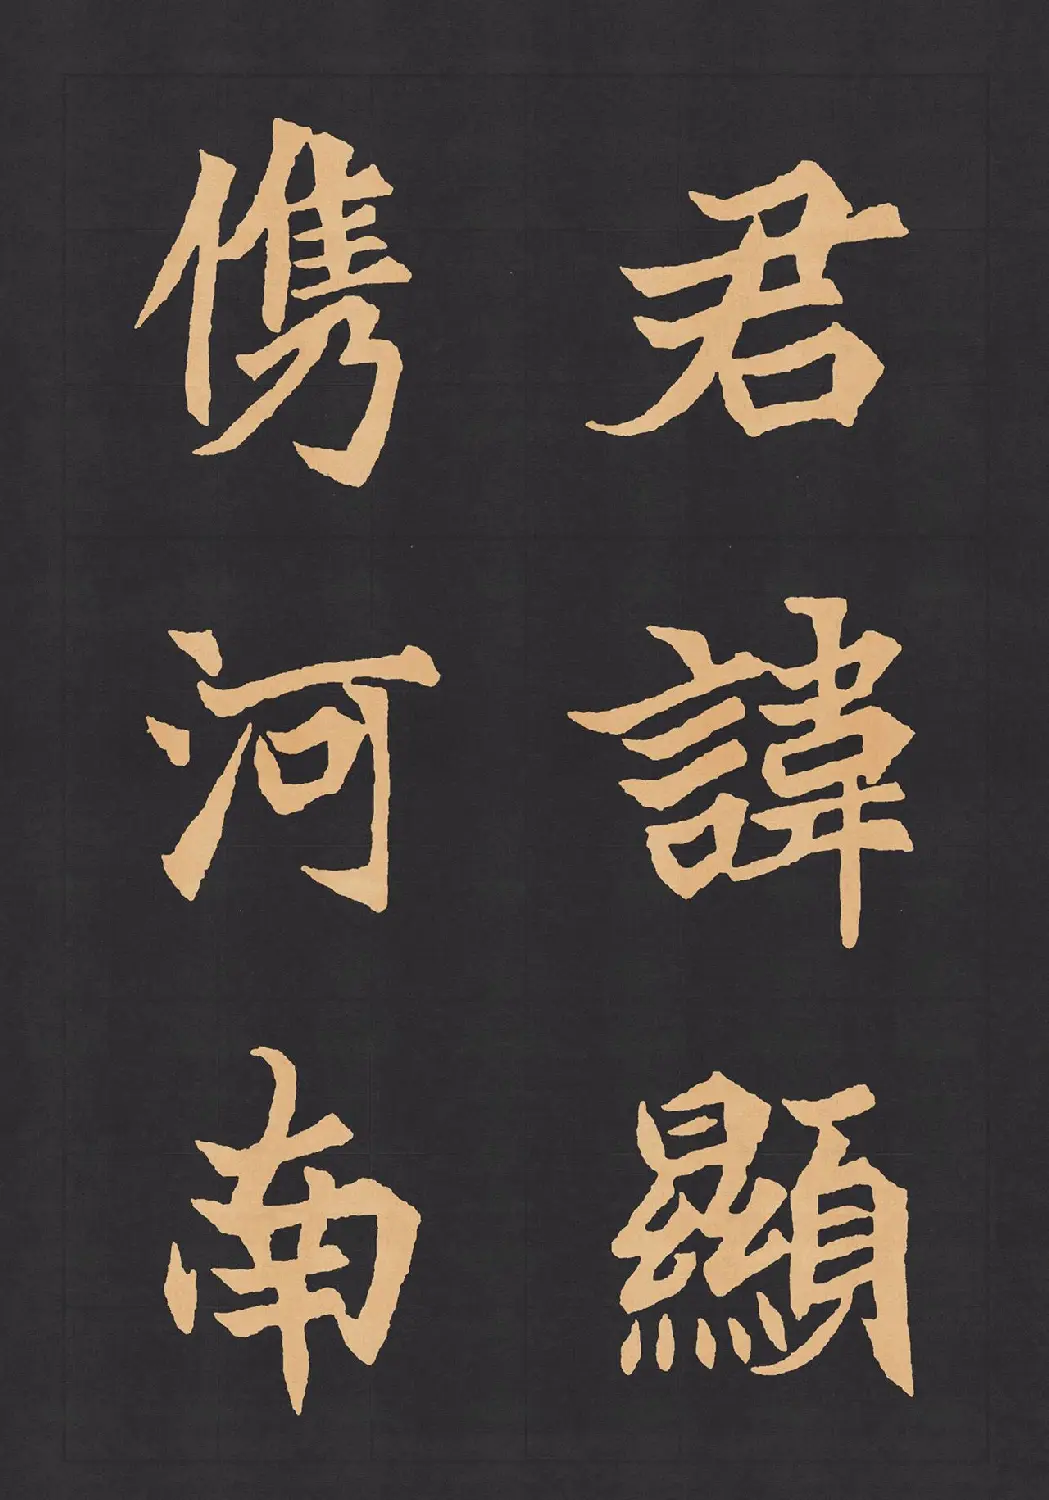 君諱顯
儁河南